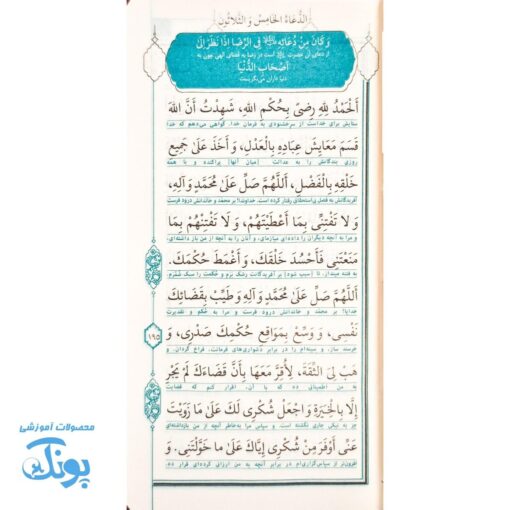 الدُّعَاءُ الْخَامِسُ وَ الثَّلَاثُون
وَ كَانَ مِنْ دُعَائِهِ ﷷ فِي الرِّضَا اِذَا نَظَرَ اِلَىٰ
از دعای آن حضرت است در رضا به قضای الهی چون به
اَصْحَابِ الدُّنْيَا
دنیا داران می‌نگریست
اَلْحَمْدُ لِلّٰهِ رِضىً بِحُكْمِ اللّٰهِ، شَهِدْتُ اَنَّ اللّٰهَ
ستایش برای خداست از سر خشنودی به فرمان خدا. گواهی می‌دهم که خدا
قَسَمَ مَعَايِشَ عِبَادِهِ بِالْعَدْلِ، وَ اَخَذَ عَلَىٰ جَمِيعِ
روزی بندگانش را به عدالت (میان آنها) پراکنده و با همه
خَلْقِهِ بِالْفَضْلِ، اَللّٰهُمَّ صَلِّ عَلَىٰ مُحَمَّدٍ وَ آلِهِ،
آفریدگانش به فضل بی‌استحقاق رفتار کرده است. خداوندا! بر محمد و خاندانش درود فرست
وَ لَا تَفْتِنِّي بِمَا اَعْطَيْتَهُمْ، وَ لَا تَفْتِنْهُمْ بِمَا
و مرا به آنچه دیگران را داده‌ای میازمای، و آنان را به آنچه از من باز داشته‌ای،
مَنَعْتَنِي فَاَحْسُدَ خَلْقَكَ، وَ اَغْمَطَ حُكْمَكَ.
به فتنه مینداز، تا (سبب شود) بر آفریدگانت رشک برم و حکمت را سبک شمرم
اَللّٰهُمَّ صَلِّ عَلَىٰ مُحَمَّدٍ وَ آلِهِ وَ طَيِّبْ بِقَضَائِكَ
خدایا! بر محمد و خاندانش درود فرست و مرا به حکم و تقدیرت
نَفْسِي، وَ وَسِّعْ بِمَوَاقِعِ حُكْمِكَ صَدْرِي، وَ
خرسند ساز، و سینه‌ام را در برابر دشواری‌های فرمانت، فراخ گردان، و
۱۹۵
هَبْ لِيَ الثِّقَةَ، لِاُقِرَّ مَعَهَا بِاَنَّ قَضَاءَكَ لَمْ يَجْرِ
به من اطمینانی ده که با آن، اقرار کنم که قضایت
اِلَّا بِالْخِيَرَةِ وَ اجْعَلْ شُكْرِي لَكَ عَلَىٰ مَا زَوَيْتَ
جز به نیکی جاری نگشته است. و سپاس مرا به‌خاطر آنچه از من بازداشته‌ای
عَنِّي اَوْفَرَ مِنْ شُكْرِي اِيَّاكَ عَلَىٰ مَا خَوَّلْتَنِي. وَ
افزون‌تر از سپاس‌گزاری‌ام در برابر آنچه به من ارزانی کرده‌ای قرار ده.
محصولات آموزشی
پونک